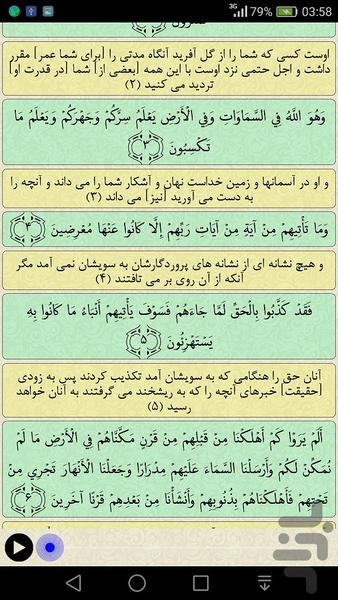 3G 79% 03:58
اوست کسی که شما را از گل آفرید آنگاه مدتی را [برای شما عمر] مقرر
داشت و اجل حتمی نزد اوست با این همه [بعضی از] شما [در قدرت او]
تردید می کنید (۲)
وَهُوَ اللَّهُ فِي السَّمَاوَاتِ وَفِي الْأَرْضِ يَعْلَمُ سِرَّكُمْ وَجَهْرَكُمْ وَيَعْلَمُ مَا
تَكْسِبُونَ ۳
و او در آسمانها و زمین خداست نهان و آشکار شما را می داند و آنچه را
به دست می آورید [نیز] می داند (۳)
وَمَا تَأْتِيهِمْ مِنْ آيَةٍ مِنْ آيَاتِ رَبِّهِمْ إِلَّا كَانُوا عَنْهَا مُعْرِضِينَ ۴
و هیچ نشانه ای از نشانه های پروردگارشان به سویشان نمی آمد مگر
آنکه از آن روی بر می تافتند (۴)
فَقَدْ كَذَّبُوا بِالْحَقِّ لَمَّا جَاءَهُمْ فَسَوْفَ يَأْتِيهِمْ أَنْبَاءُ مَا كَانُوا بِهِ
يَسْتَهْزِئُونَ ۵
آنان حق را هنگامی که به سویشان آمد تکذیب کردند پس به زودی
[حقیقت] خبرهای آنچه را که به ریشخند می گرفتند به آنان خواهد
رسید (۵)
أَلَمْ يَرَوْا كَمْ أَهْلَكْنَا مِنْ قَبْلِهِمْ مِنْ قَرْنٍ مَكَّنَّاهُمْ فِي الْأَرْضِ مَا لَمْ
نُمَكِّنْ لَكُمْ وَأَرْسَلْنَا السَّمَاءَ عَلَيْهِمْ مِدْرَارًا وَجَعَلْنَا الْأَنْهَارَ تَجْرِي مِنْ
تَحْتِهِمْ فَأَهْلَكْنَاهُمْ بِذُنُوبِهِمْ وَأَنْشَأْنَا مِنْ بَعْدِهِمْ قَرْنًا آخَرِينَ ۶